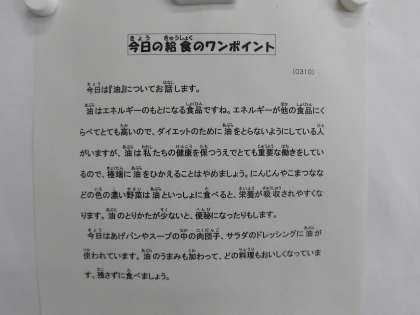 今日の給食のワンポイント
(0310)
今日は『油』についてお話します。
油はエネルギーのもとになる食品ですね。エネルギーが他の食品にく
らべてとても高いので、ダイエットのために油をとらないようにしている人
がいますが、油は私たちの健康を保つうえでとても重要な働きをしてい
るので、極端に油をひかえることはやめましょう。にんじんやこまつなな
どの色の濃い野菜は油といっしょに食べると、栄養が吸収されやすくな
ります。油のとりかたが少ないと、便秘になったりもします。
今日はあげパンやスープの中の肉団子、サラダのドレッシングに油が
使われています。油のうまみも加わって、どの料理もおいしくなっていま
す。残さずに食べましょう。